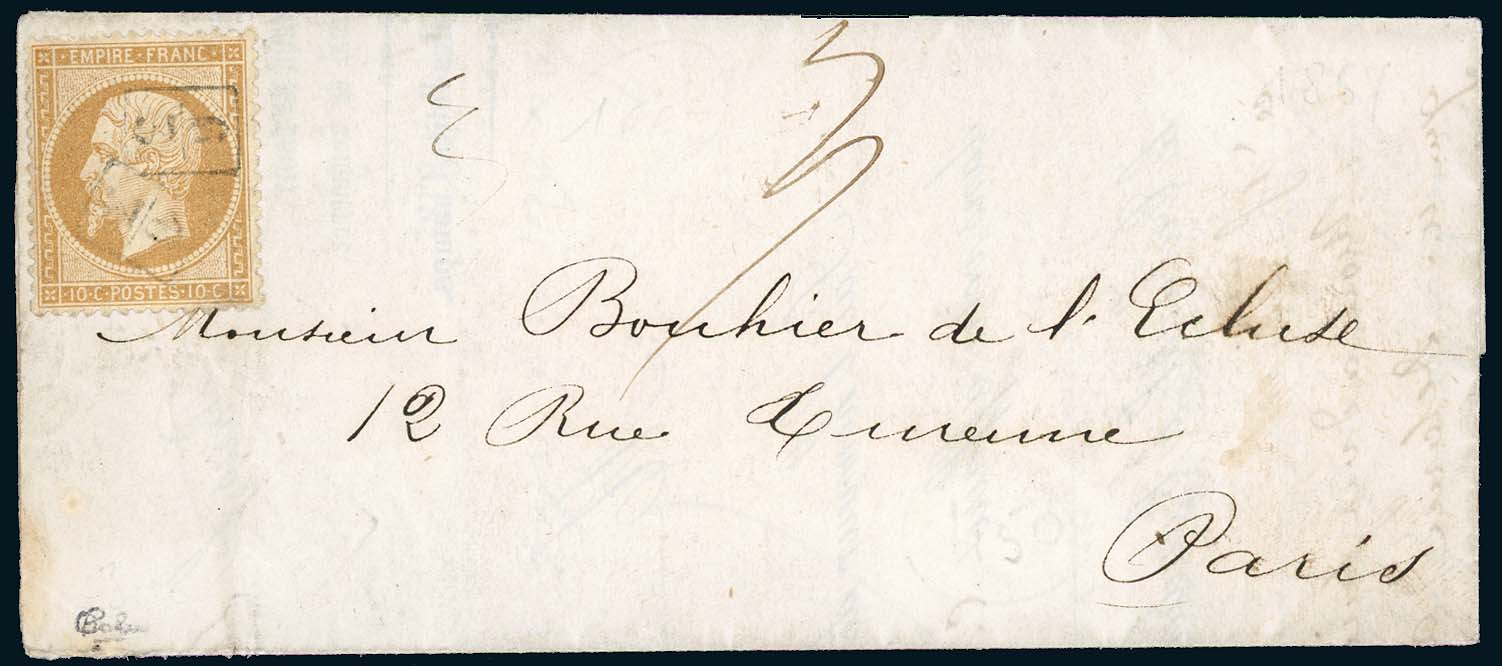 EMPIRE·FRANC·
10·C·POSTES·10·C
Monsieur Bouhier de l'Ecluse
12 Rue Turenne
Paris